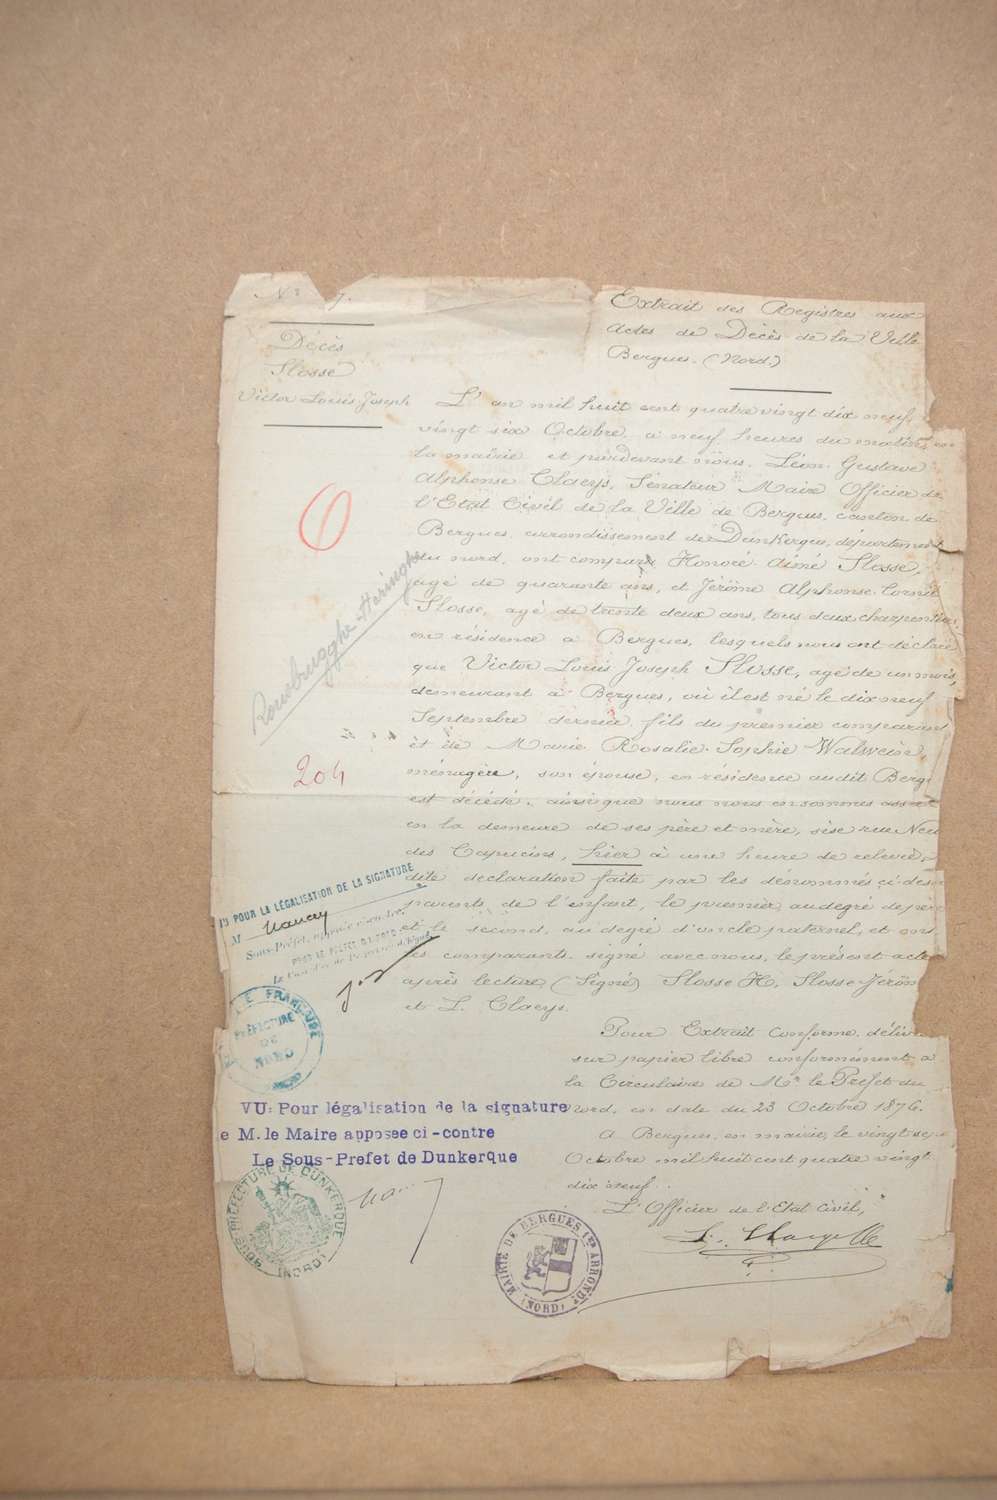 Nº 7.
Décès
Slosse
Victor Louis Joseph
Extrait des Registres aux
actes de Décès de la Ville
Bergues. (Nord.)
L'an mil huit cent quatre vingt dix neuf,
vingt six Octobre, à neuf heures du matin, en
la mairie et pardevant nous, Léon Gustave
Alphonse Claeys, Sénateur Maire Officier de
l'Etat Civil de la Ville de Bergues, canton de
Bergues, arrondissement de Dunkerque, département
du nord, ont comparu Honoré Aimé Slosse,
agé de quarante ans, et Jérôme Alphonse Cornil
Slosse, agé de trente deux ans, tous deux charpentiers
en résidence à Bergues, lesquels nous ont déclaré
que Victor Louis Joseph Slosse, agé de un mois,
demeurant à Bergues, où il est né le dix neuf
Septembre dernier, fils du premier comparant
et de Marie Rosalie Sophie Walwein,
ménagère, son épouse, en résidence audit Bergu
est décédé, ainsi que nous nous en sommes assuré
en la demeure de ses père et mère, sise rue Neu
des Capucins, hier à une heure de relevée,
dite déclaration faite par les dénommés ci-des
parents de l'enfant, le premier au degré de père
et le second, au degré d'oncle paternel, et ont
les comparants signé avec nous, le présent acte
après lecture (Signé) Slosse H. Slosse Jérôm
et L. Claeys.
Pour Extrait conforme, déliv
sur papier libre conformément à
la Circulaire de Mr. le Préfet du
Nord, en date du 23 Octobre 1876.
A Bergues, en mairie, le vingt sep
Octobre mil huit cent quatre vingt
dix neuf.
L'Officier de l'Etat Civil,
Rousbrugghe-Haringhe
204
POUR LA LÉGALISATION DE LA SIGNATURE
M
Sous-Préfet, apposée ci-contre
POUR LE PRÉFET DU NORD
Le Conseiller de Préfecture délégué
E FRANÇAISE
PRÉFECTURE
DU
NORD
VU: Pour légalisation de la signature
e M. le Maire apposee ci-contre
Le Sous-Prefet de Dunkerque
SOUS-PRÉFECTURE DE DUNKERQUE
(NORD)
MAIRIE DE BERGUES
(NORD)